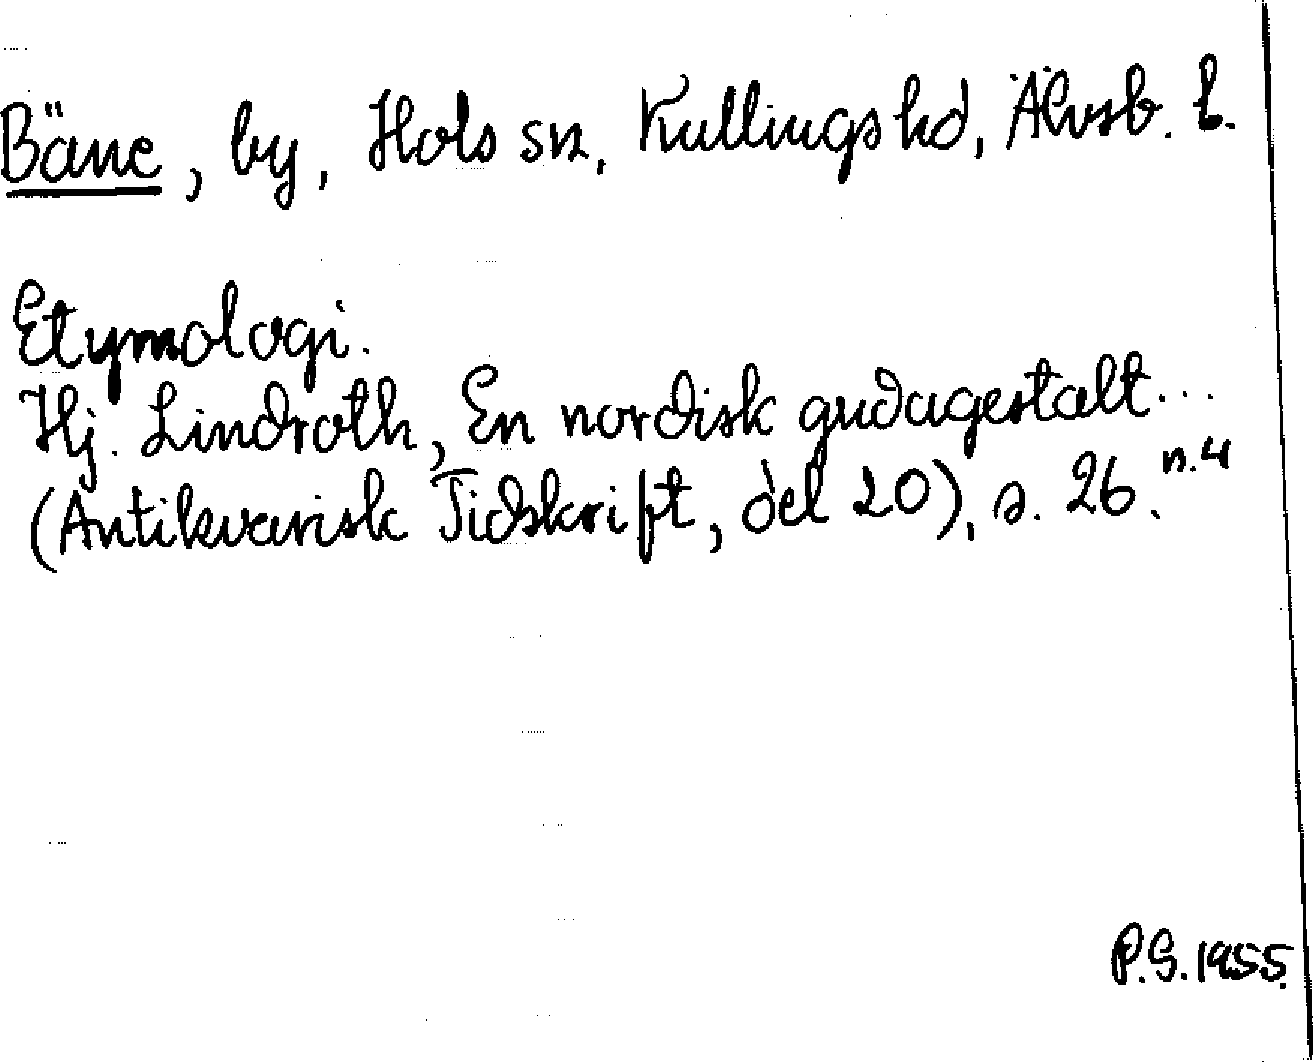 Bäne, by, Hols sn, Kullings hd, Älvsb. l.
Etymologi.
Hj. Lindroth, En nordisk gudagestalt...
(Antikvarisk Tidskrift, del 20), s. 26. n.4
P.S. 1955.